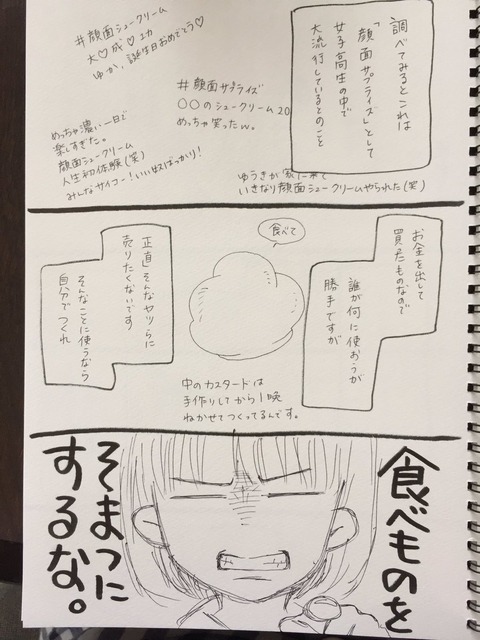 調べてみるとこれは
「顔面サプライズ」として
女子高生の中で
大流行しているとのこと
#顔面シュークリーム
大♡成♡功
ゆか、誕生日おめでとう♡
#顔面サプライズ
〇〇のシュークリーム20
めっちゃ笑ったw.
めっちゃ濃い一日で
楽しすぎた。
顔面シュークリーム
人生初体験(笑)
みんなサイコー!いい奴ばっかり!
ゆうきが家に来て
いきなり顔面シュークリームやられた(笑)
お金を出して
買ったものなので
誰が何に使おうが
勝手ですが
食べて
中のカスタードは
手作りしてから1晩
ねかせてつくってるんです。
正直そんなヤツらに
売りたくないです
そんなことに使うなら
自分でつくれ
食べものを
そまつに
するな。